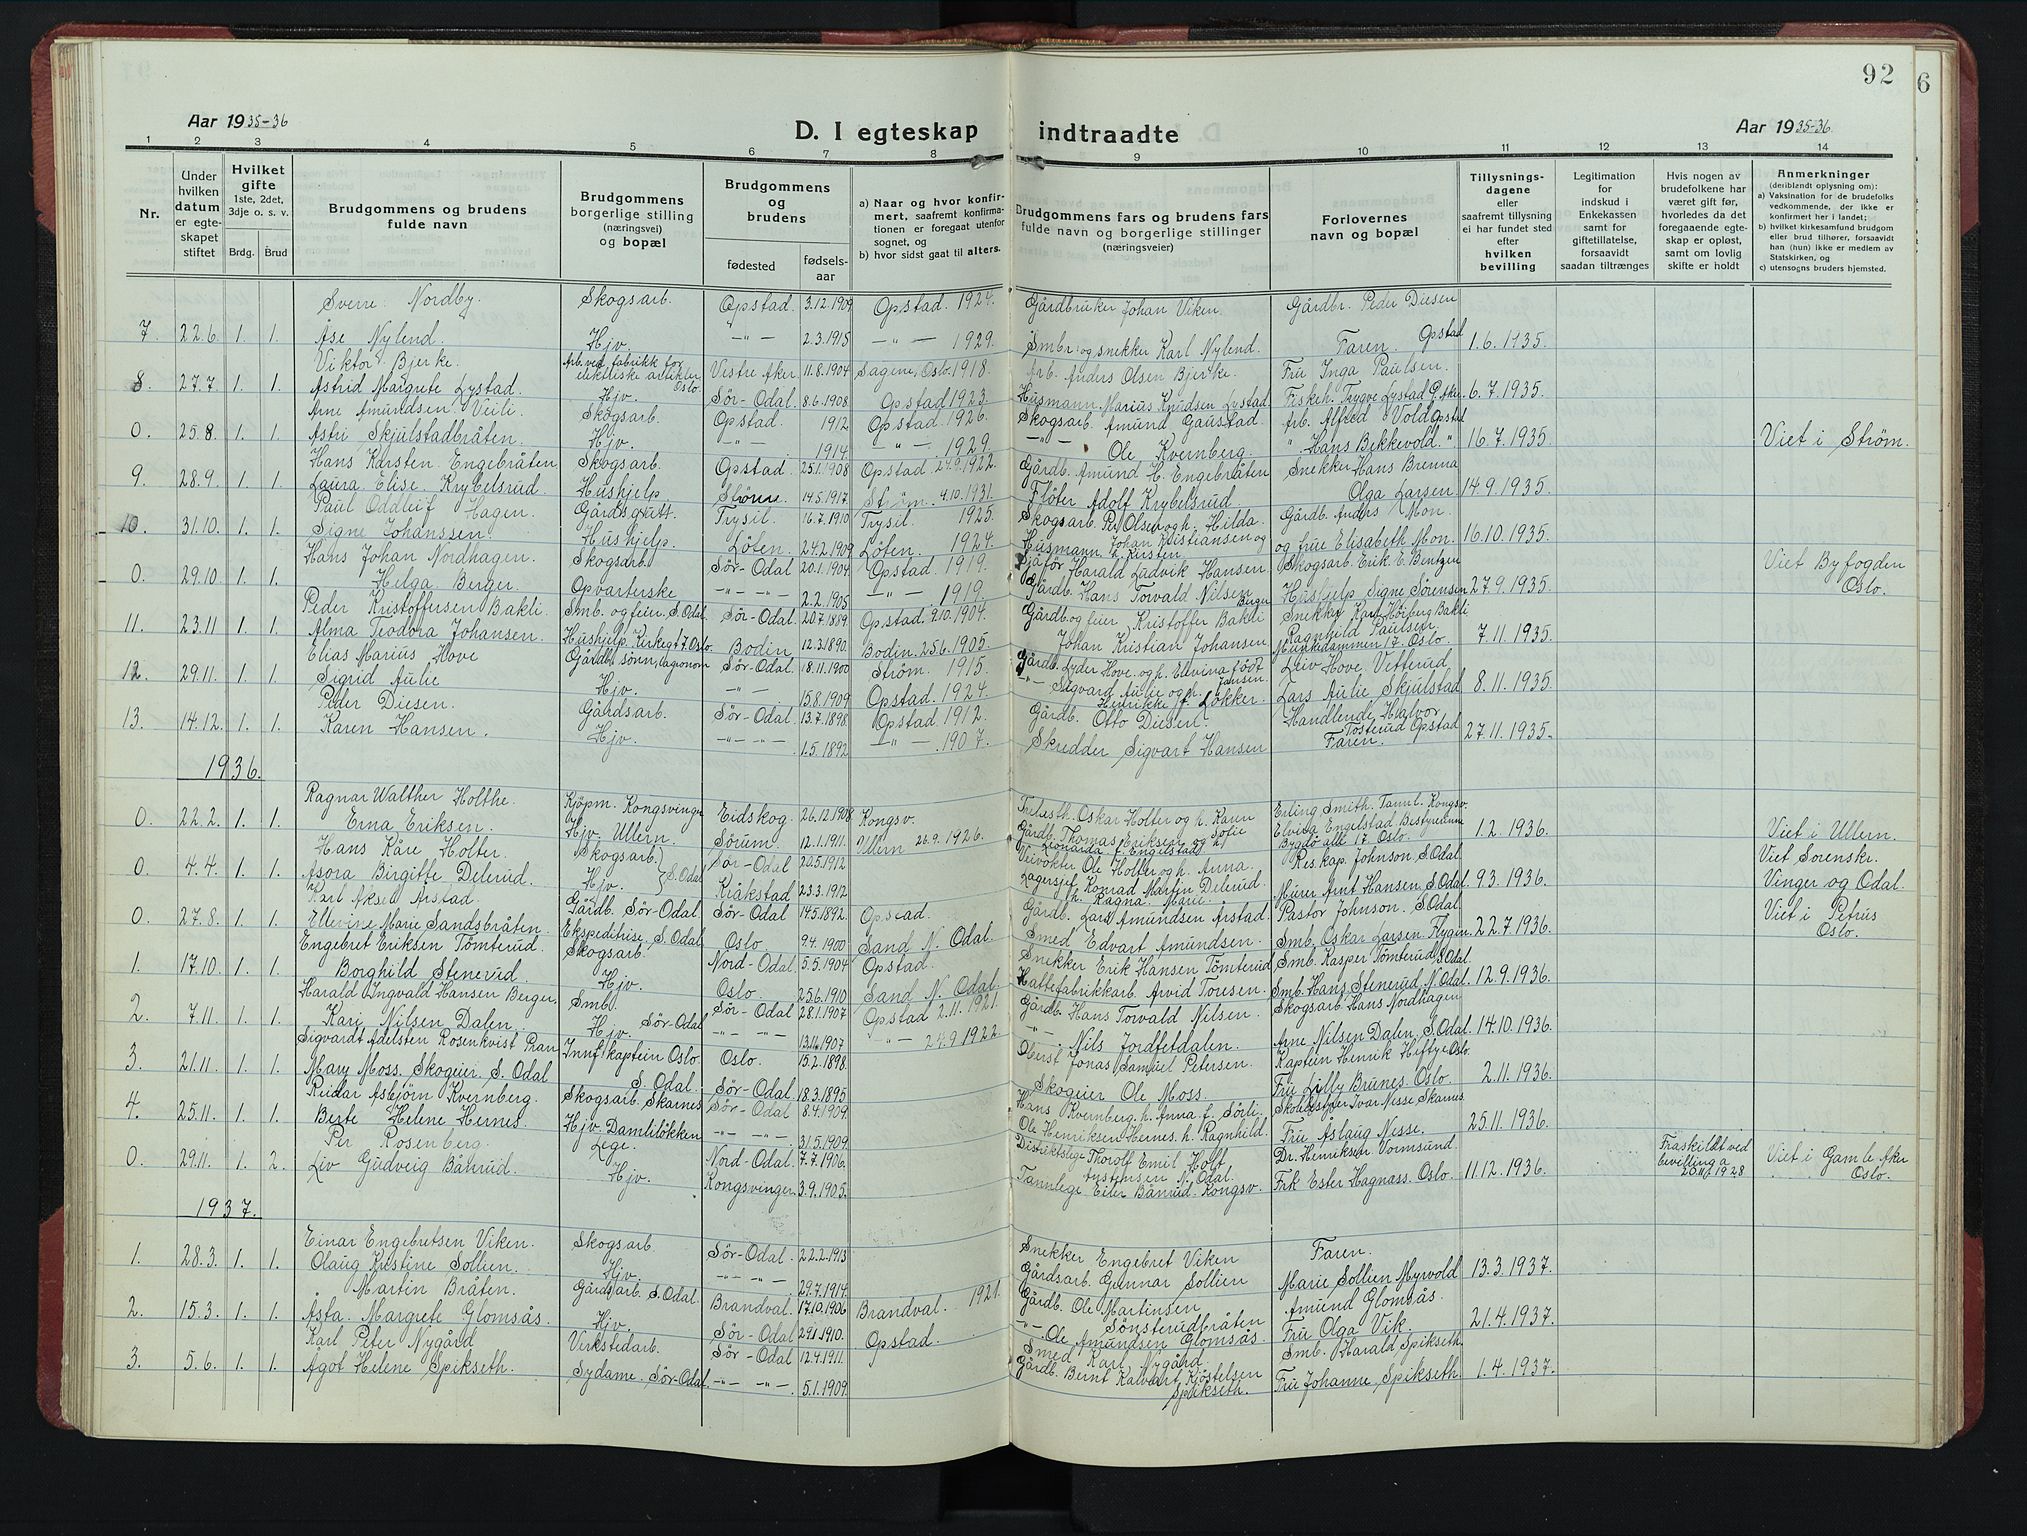 92
6
Aar 1935-36
D. I egteskap indtraadte
Aar 1935-36.
1 2 3 4 5 6 7 8 9 10 11 12 13 14
Nr.
Under hvilken datum er egteskapet stiftet
Hvilket gifte 1ste, 2det, 3dje o. s. v.
Brdg. Brud
Brudgommens og brudens fulde navn
Brudgommens borgerlige stilling (næringsvei) og bopæl
Brudgommens og brudens
fødested
fødsels-aar
a) Naar og hvor konfirmert, saafremt konfirmationen er foregaat utenfor sognet, og
b) hvor sidst gaat til alters.
Brudgommens fars og brudens fars fulde navn og borgerlige stillinger (næringsveier)
Forlovernes navn og bopæl
Tillysnings-dagene eller saafremt tillysning ei har fundet sted efter hvilken bevilling
Legitimation for indskud i Enkekassen samt for giftetillatelse, forsaavidt saadan tiltrænges
Hvis nogen av brudefolkene har været gift før, hvorledes da det foregaaende egteskap er opløst, samt om lovlig skifte er holdt
Anmerkninger (deriblandt oplysning om):
a) Vaksination for de brudefolks vedkommende, der ikke er konfirmert her i landet;
b) hvilket kirkesamfund brudgom eller brud tilhører, forsaavidt han (hun) ikke er medlem av Statskirken, og
c) utensogns bruders hjemsted.
Sverre Nordby. Skogsarb. Opstad. 3.12.1909 Opstad. 1924. Gårdbruker Johan Viken. Gårdbr. Peder Diesen Opstad
7 22.6 1. 1. Åse Nylend. Hjv. -"- 2.3.1915 -"- 1929. Smbr. og snekker Karl Nylend. Faren. 1.6.1935.
Viktor Bjerke. Arb. ved fabrikk for elektriske artikler Oslo. Vestre Aker. 11.8.1904 Sagene, Oslo. 1918. Arb. Anders Olsen Bjerke. Fru Inga Paulsen.
8. 27.7 1. 1. Astrid Margrete Lystad. Hjv. Sör-Odal. 8.6.1908. Opstad 1923. Husmann. Marius Knudsen Lystad Fiskeh. Trygve Lystad 6.7.1935.
Arne Amundsen Veili. Skogsarb. Opstad. 1912 Opstad. 1926. Skogsarb. Amund Gaustad. Arb. Alfred Vold Opstad
0. 25.8. 1. 1. Astri Skjulstadbråten. Hjv. -"- 1914. -"- 1929. -"- Ole Kvernberg. " Hans Bekkevold. " 16.7.1935. Viet i Strøm.
Hans Karsten Engebråten Skogsarb. Opstad. 25.1.1908 Opstad. 24.9.1922. Gårdb. Amund H. Engebråten Snekker Hans Brenna
9. 28.9. 1. 1. Laura Elise Krybelsrud. Hushjelp. 14.5.1917. Ström. 4.10.1931. Flöter Adolf Krybelsrud. Olga Larsen 14.9.1935.
Paul Oddleif Hagen. Gårdsgutt. Trysil. 16.7.1910 Trysil. 1925. Skogsarb. Per Olsen og h. Hilda. Gårdb. Anders Mon.
10. 31.10. 1. 1. Signe Johanssen. Hushjelp. Löten. 24.2.1909 Löten. 1924. Husmann Johan Kristiansen og h. Kirsten og frue Elisabeth Mon. 16.10.1935.
Hans Johan Nordhagen. Skogsarb. Sör-Odal 20.1.1904. Opstad. 1919. Sjåför Harald Ludvik Hansen Skogsarb. Erik E. Bentzen Viet Byfogden
0. 29.10. 1. 1. Helga Berger. Opvarterske -"- -"- 2.2.1905 -"- 1919. Gårdb. Hans Torvald Nilsen Berger Hushjelp Signe Sörensen 27.9.1935. Oslo.
Peder Kristoffersen Bakli. Smb. og feier. S. Odal. Sör-Odal. 20.7.1889 Opstad. 9.10.1904. Gårdb. og feier Kristoffer Bakli Snekker Karl Höiberg Bakli
11. 23.11 1. 1. Alma Teodora Johansen. Hushjelp. Oslo Bodin 12.3.1890. Bodin. 25.6.1905 Johan Kristian Johansen Ragnhild Paulsen. Munkedammen 17 Oslo. 7.11.1935.
Elias Marius Hove Gårdbr. sönn, agronom Sör-Odal. 18.11.1900 Ström. 1915. Gårdb. Lyder Hove og h. Ellevina född Jansen. Leiv Hove Vetterud
12. 29.11. 1. 1. Sigrid Aulie Hjv. -"- 15.8.1909 Opstad. 1924. -"- Sigvard Aulie og h. Henrikke f. Lökker. Lars Aulie Skjulstad 8.11.1935.
Peder Diesen. Gårdsarb. Sör-Odal 13.7.1898 Opstad. 1912. Gårdb. Otto Diesen. Handlende Halvor Tosterud Opstad
13. 14.12. 1. 1. Karen Hansen. Hjv. -"- -"- 1.5.1892 -"- 1907. Skredder Sigvart Hansen Faren. 27.11.1935.
1936.
Ragnar Walther Holthe. Kjöpm. Kongsvinger Eidskog. 26.12.1908. Kongsv. Trelasth. Oskar Holter og h. Karen Erling Smith. Tannl. Kongsv.
0. 22.2. 1. 1. Erna Eriksen. Hjv. Ullern. Sørum. 12.1.1911. Ullern 26.9.1926. Gårdb. Thomas Eriksen og h. Sofie Leonarda f. Engelstad Elvida Engelstad Bestyrerinne Bygdö allé 17 Oslo. 1.2.1936. Viet i Ullern.
Hans Kåre Holter. Skogsarb. Sör-Odal 20.5.1912 Veivokter Ole Holter og h. Anna. Res.kap. Johnson. S. Odal. Viet Sorenskr.
0. 4.4. 1. 1. Asora Birgitte Delerud. Hjv. S. Odal Kråkstad 23.3.1912 Lagersjef Konrad Martin Delerud. h. Ragna Marie. Murer Arnt Hansen. S. Odal. 9.3.1936. Vinger og Odal.
Karl Aksel Årstad. Gårdb. Sör-Odal. Sör-Odal 14.5.1892. Opstad. Gårdb. Lars Amundsen Årstad. Pastor Johnson. S. Odal. Viet i Petrus
0. 27.8. 1. 1. Ellevine Marie Sandsbråten. Ekspeditrise. S. Odal Oslo 9.4.1900 Sand N. Odal. Smed Edvart Amundsen. Smb. Oskar Larsen Flygin. 22.7.1936. Oslo.
Engebret Eriksen Tömterud. Skogsarb. Nord-Odal. 5.5.1904 Opstad. Snekker Erik Hansen Tömterud Smb. Kasper Tömterud S. Odal.
1. 17.10. 1. 1. Borghild Stenerud. Hjv. Oslo 25.6.1910 Sand N. Odal. Hattefabrikkarb. Arvid Toresen. Smb. Hans Stenerud N. Odal. 12.9.1936.
Harald Ingvald Hansen Berger. Smb. Sör-Odal Sör-Odal 28.1.1907 Opstad 2.11.1921. Gårdb. Hans Torvald Nilsen. Skogsarb. Hans Nordhagen
2. 7.11. 1. 1. Kari Nilsen Dalen. Hjv. -"- -"- 13.11.1907 -"- 24.9.1922. -"- Nils Jordfetdalen. Arne Nilsen Dalen. S. Odal. 14.10.1936.
Sigvardt Adelsten Rosenkvist Pran Innf. kaptein Oslo. Oslo. 15.2.1898. Oberst Jonas Samuel Petersen. Kaptein Henrik Heftye Oslo.
3. 21.11. 1. 1. Mary Moss. Skogeier. S. Odal S. Odal. Sör-Odal 18.3.1895 Skogeier Ole Moss. Fru Lilly Brunes. Oslo. 2.11.1936.
Reidar Asbjörn Kvernberg. Skogsarb. Skarnes Sör-Odal 8.4.1909 Hans Kvernberg. h. Anna f. Sörli. Skolebestyrer Ivar Nesse Skarnes
4. 25.11. 1. 1. Berte Helene Hernes. Hjv. Damtjlökken -"- -"- 31.5.1909 Ole Henriksen Hernes. h. Ragnhild. Fru Åslaug Nesse. 25.11.1936.
Per Rosenberg. Lege. Nord-Odal. 7.7.1906. Distriktslege Thorolf Emil Holt N. Odal. Dr. Henriksen Vormsund. Fraskildt ved Viet i Gamle Aker
0. 29.11. 1. 2. Liv Gudveig Bånrud. Hjv. Kongsvinger. 3.9.1905. Tannlege Eiler Bånrud. Kongsv. Frk Ester Hagnass. Oslo. 11.12.1936. bevilling a 20 1928 Oslo.
1937.
Einar Engebretsen Viken. Skogsarb. Sör-Odal. 22.2.1913 Snekker Engebret Viken Faren.
1. 28.3. 1. 1. Olaug Kristine Sollien. Hjv. -"- -"- 29.7.1914. Gårdsarb. Gunnar Sollien Marie Sollien Myrvold 13.3.1937.
Martin Bråten. Gårdsarb. S. Odal. Brandval. 17.10.1906 Brandval. 1921. Gårdb. Ole Martinsen Sönsterudbråten Amund Glomsås.
2. 15.3. 1. 1. Åsta Margrete Glomsås. Hjv. Sör-Odal 29.1.1910. Opstad. -"- Ole Amundsen Glomsås. Fru Olga Vik. 21.4.1937.
Karl Peter Nygård Verkstedarb. Sör-Odal 12.4.1911. Smed Karl Nygård. Smb. Harald Spikseth.
3. 5.6. 1. 1. Ågot Helene Spikseth. Sydame. Sör-Odal. -"- -"- 5.1.1909. Gårdb. Bernt Kalvart Kjöstelsen Spikseth. Fru Johanne Spikseth. 1.4.1937.